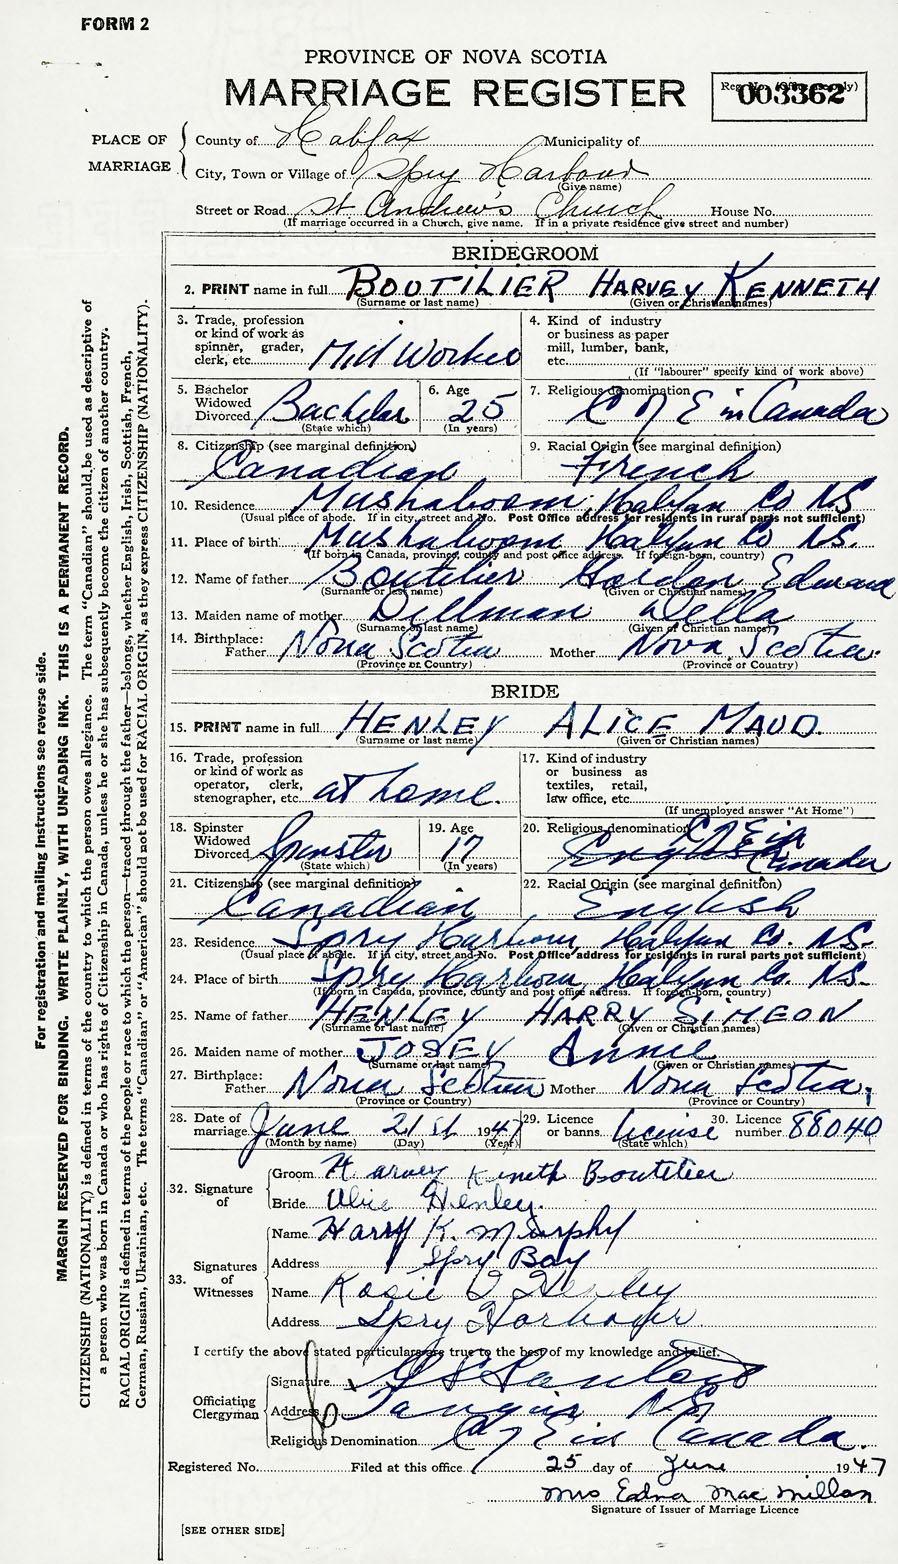 FORM 2
PROVINCE OF NOVA SCOTIA
MARRIAGE REGISTER
Reg. No. (Office use only)
003362
PLACE OF MARRIAGE
County of Halifax Municipality of
City, Town or Village of Spry Harbour
(Give name)
Street or Road St Andrew's Church House No.
(If marriage occurred in a Church, give name. If in a private residence give street and number)
BRIDEGROOM
2. PRINT name in full BOUTILIER HARVEY KENNETH
(Surname or last name) (Given or Christian names)
3. Trade, profession or kind of work as spinner, grader, clerk, etc. Mill Worker
4. Kind of industry or business as paper mill, lumber, bank, etc.
(If "labourer" specify kind of work above)
5. Bachelor Widowed Divorced Bachelor
(State which)
6. Age 25
(In years)
7. Religious denomination C of E in Canada
8. Citizenship (see marginal definition) Canadian
9. Racial Origin (see marginal definition) French
10. Residence Mushaboom, Halifax Co NS
(Usual place of abode. If in city, street and No. Post Office address for residents in rural parts not sufficient)
11. Place of birth Mushaboom Halifax Co NS.
(If born in Canada, province, county and post office address. If foreign-born, country)
12. Name of father Boutilier Edward
(Surname or last name) (Given or Christian names)
13. Maiden name of mother Dillman Della
(Surname or last name) (Given or Christian names)
14. Birthplace: Father Nova Scotia Mother Nova Scotia.
(Province or Country) (Province or Country)
BRIDE
15. PRINT name in full HENLEY ALICE MAUD.
(Surname or last name) (Given or Christian names)
16. Trade, profession or kind of work as operator, clerk, stenographer, etc. at home.
17. Kind of industry or business as textiles, retail, law office, etc.
(If unemployed answer "At Home")
18. Spinster Widowed Divorced Spinster
(State which)
19. Age 17
(In years)
20. Religious denomination C of E in Canada
21. Citizenship (see marginal definition) Canadian
22. Racial Origin (see marginal definition) English
23. Residence Spry Harbour, Halifax Co. NS.
(Usual place of abode. If in city, street and No. Post Office address for residents in rural parts not sufficient)
24. Place of birth Spry Harbour, Halifax Co. NS.
(If born in Canada, province, county and post office address. If foreign-born, country)
25. Name of father HENLEY HARRY SIMEON
(Surname or last name) (Given or Christian names)
26. Maiden name of mother JOSEY Annie
(Surname or last name) (Given or Christian names)
27. Birthplace: Father Nova Scotia Mother Nova Scotia,
(Province or Country) (Province or Country)
28. Date of marriage June 21st 1947
(Month by name) (Day) (Year)
29. Licence or banns License
(State which)
30. Licence number 88040
32. Signature of
Groom Harvey Kineth Boutilier
Bride Alice Henley.
33. Signatures of Witnesses
Name Harry K. Murphy
Address Spry Bay
Name Rosie Henley
Address Spry Harbour
I certify the above stated particulars are true to the best of my knowledge and belief.
Officiating Clergyman
Signature
Address Tangier NS
Religious Denomination C of E in Canada.
Registered No. Filed at this office 25 day of June 1947
Mrs Edna Mac Millan
Signature of Issuer of Marriage Licence
[SEE OTHER SIDE]
For registration and mailing instructions see reverse side.
MARGIN RESERVED FOR BINDING. WRITE PLAINLY, WITH UNFADING INK. THIS IS A PERMANENT RECORD.
CITIZENSHIP (NATIONALITY) is defined in terms of the country to which the person owes allegiance. The term "Canadian" should be used as descriptive of
a person who was born in Canada or who has rights of Citizenship in Canada, unless he or she has subsequently become the citizen of another country.
RACIAL ORIGIN is defined in terms of the people or race to which the person—traced through the father—belongs, whether English, Irish, Scottish, French,
German, Russian, Ukrainian, etc. The terms "Canadian" or "American" should not be used for RACIAL ORIGIN, as they express CITIZENSHIP (NATIONALITY).